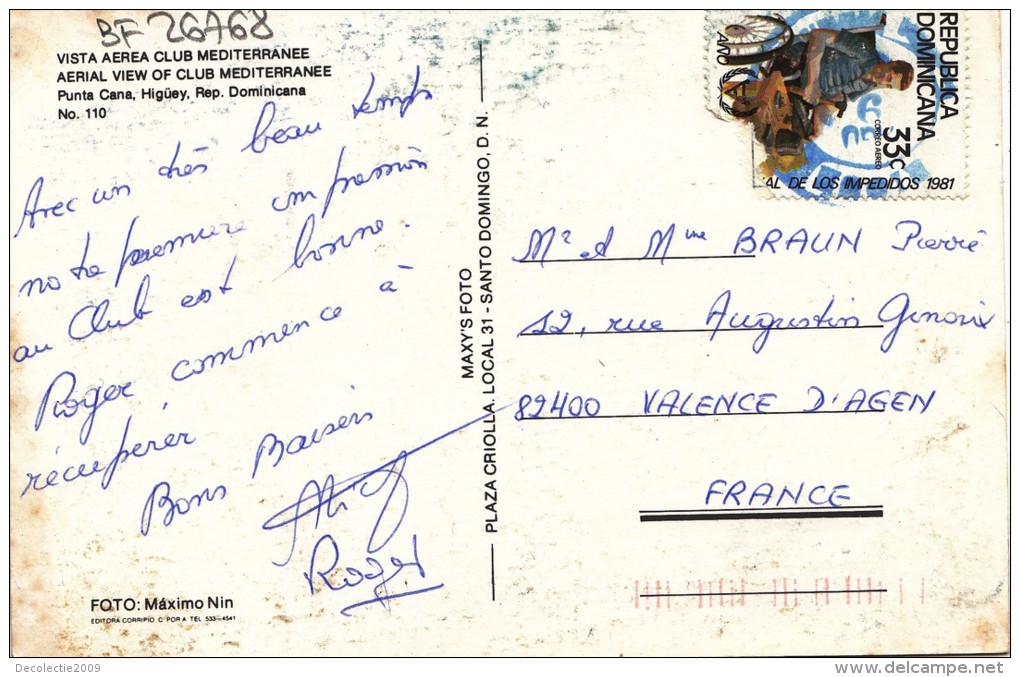 BF 26768
VISTA AEREA CLUB MEDITERRANEE
AERIAL VIEW OF CLUB MEDITERRANEE
Punta Cana, Higüey, Rep. Dominicana
No. 110
Avec un très beau temps
notre première impression
au Club est bonne.
Roger commence à
récupérer
Bons Baisers
Roger
FOTO: Máximo Nin
EDITORA CORRIPIO C POR A TEL 533-4541
MAXY'S FOTO
PLAZA CRIOLLA. LOCAL 31 - SANTO DOMINGO, D. N.
REPUBLICA
DOMINICANA
33c
CORREO AEREO
AÑO
AL DE LOS IMPEDIDOS 1981
Mr et Mme BRAUN Pierre
12, rue Augustin Genoux
82400 VALENCE D'AGEN
FRANCE
Decolectie2009
delcampe.net